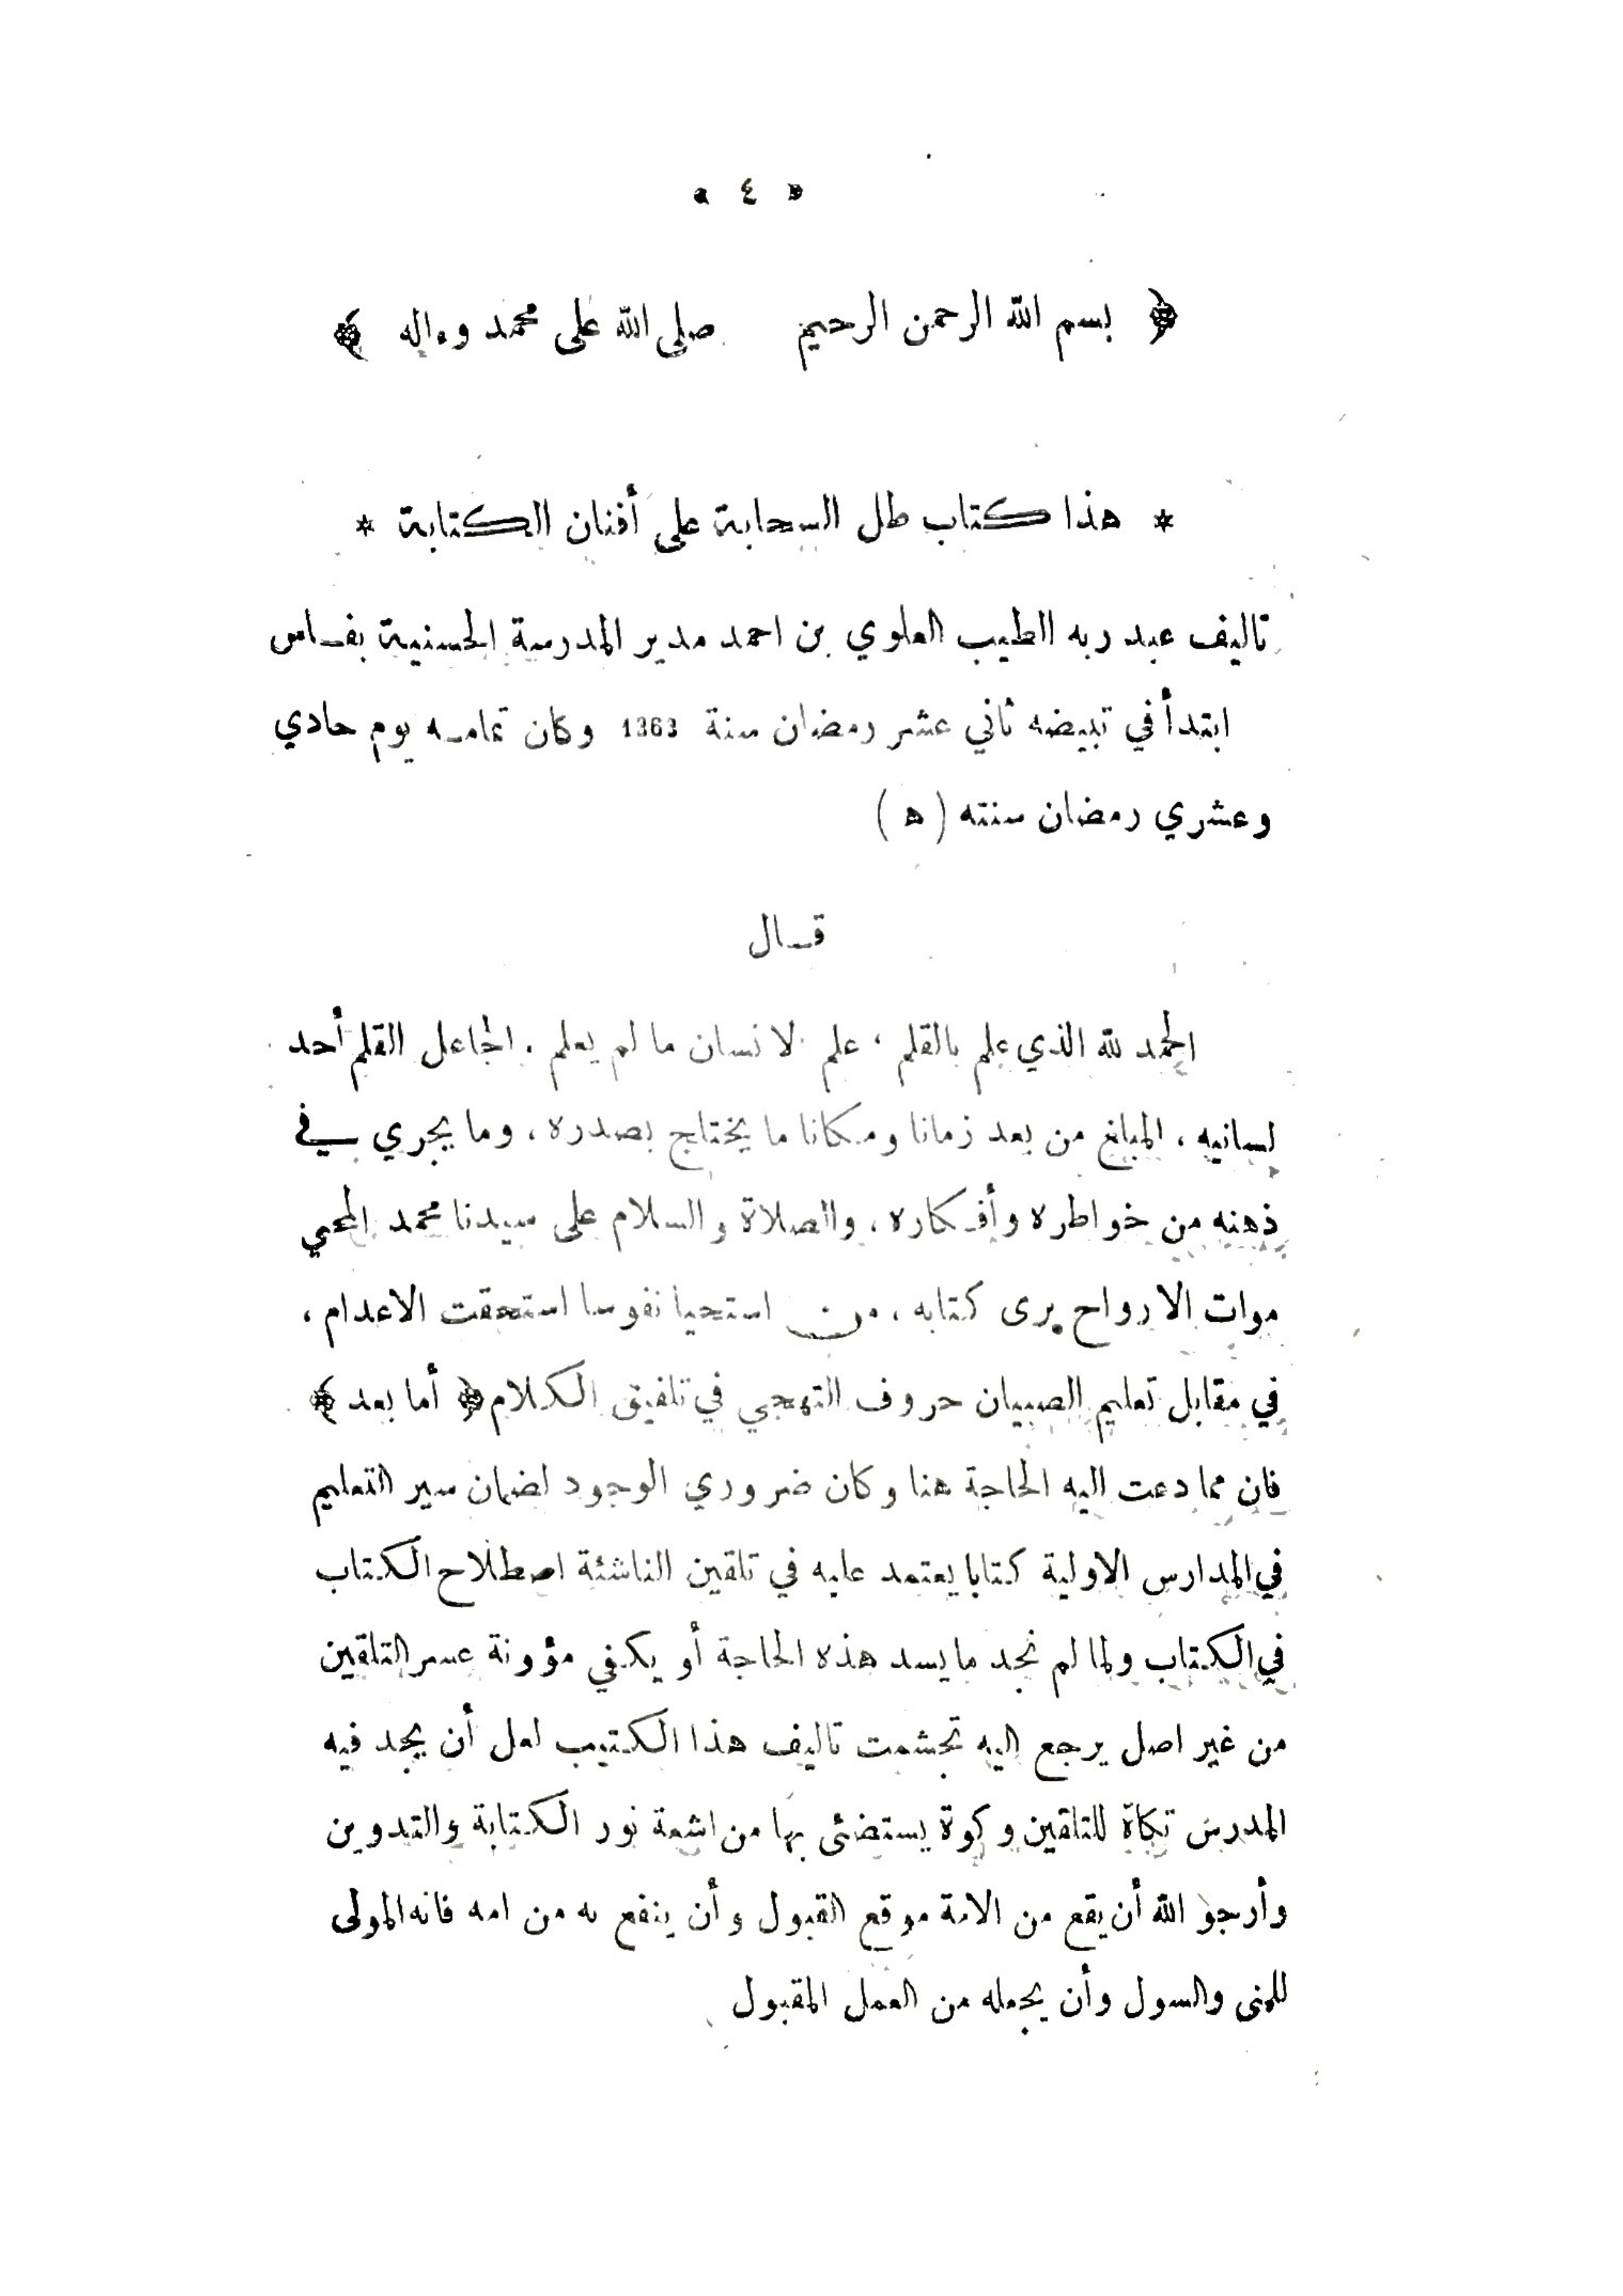 « ٤ »
﴿ بسم الله الرحمن الرحيم صلى الله على محمد وءاله ﴾
* هذا كتاب طل السحابة على أفنان الكتابة *
تاليف عبد ربه الطيب العلوي بن احمد مدير المدرسة الحسنية بفاس
ابتدأ في تبييضه ثاني عشر رمضان سنة 1363 وكان تمامه يوم حادي
وعشري رمضان سنته ( ه )
قال
الحمد لله الذي علم بالقلم ، علم الانسان ما لم يعلم . الجاعل القلم أحد
لسانيه ، المبلغ من بعد زمانا ومكانا ما يختاج بصدره ، وما يجري في
ذهنه من خواطره وأفكاره ، والصلاة والسلام على سيدنا محمد المحيي
موات الارواح برى كتابه ، من استحيا نفوسا استحقت الاعدام ،
في مقابل تعليم الصبيان حروف التهجي في تلفيق الكلام ﴿ أما بعد ﴾
فان مما دعت اليه الحاجة هنا وكان ضروري الوجود لضمان سير التعليم
في المدارس الاولية كتابا يعتمد عليه في تلقين الناشئة اصطلاح الكتاب
في الكتاب ولما لم نجد ما يسد هذه الحاجة أو يكفي مؤونة عسر التلقين
من غير اصل يرجع اليه تجشمت تاليف هذا الكتيب لعل أن يجد فيه
المدرس تكاة للتلقين وكوة يستضئى بها من اشعة نور الكتابة والتدوين
وأرجو الله أن يقع من الامة موقع القبول وأن ينفع به من امه فانه المولى
للمنى والسول وأن يجعله من العمل المقبول